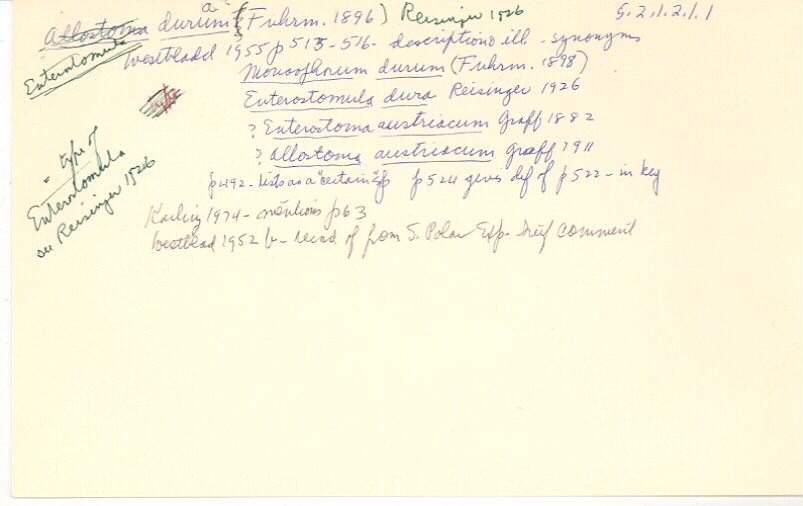 Allostoma durum a (Fuhrm. 1896) Reisinger 1926 5.2.1.2.1.1
Enterostomula
Westblad 1955 p 513-516- description & ill - synonyms
Monoophorum durum (Fuhrm. 1898)
Enterostomula dura Reisinger 1926
? Enterostoma austriacum Graff 1882
? Allostoma austriacum Graff 1911
p492- lists as a "certain" sp p524 gives def of p522- in key
" type of
Enterostomula
au Reisinger 1926
Karling 1974- mentions p63
Westblad 1952 b- record of from S. Polar Exp- brief comment